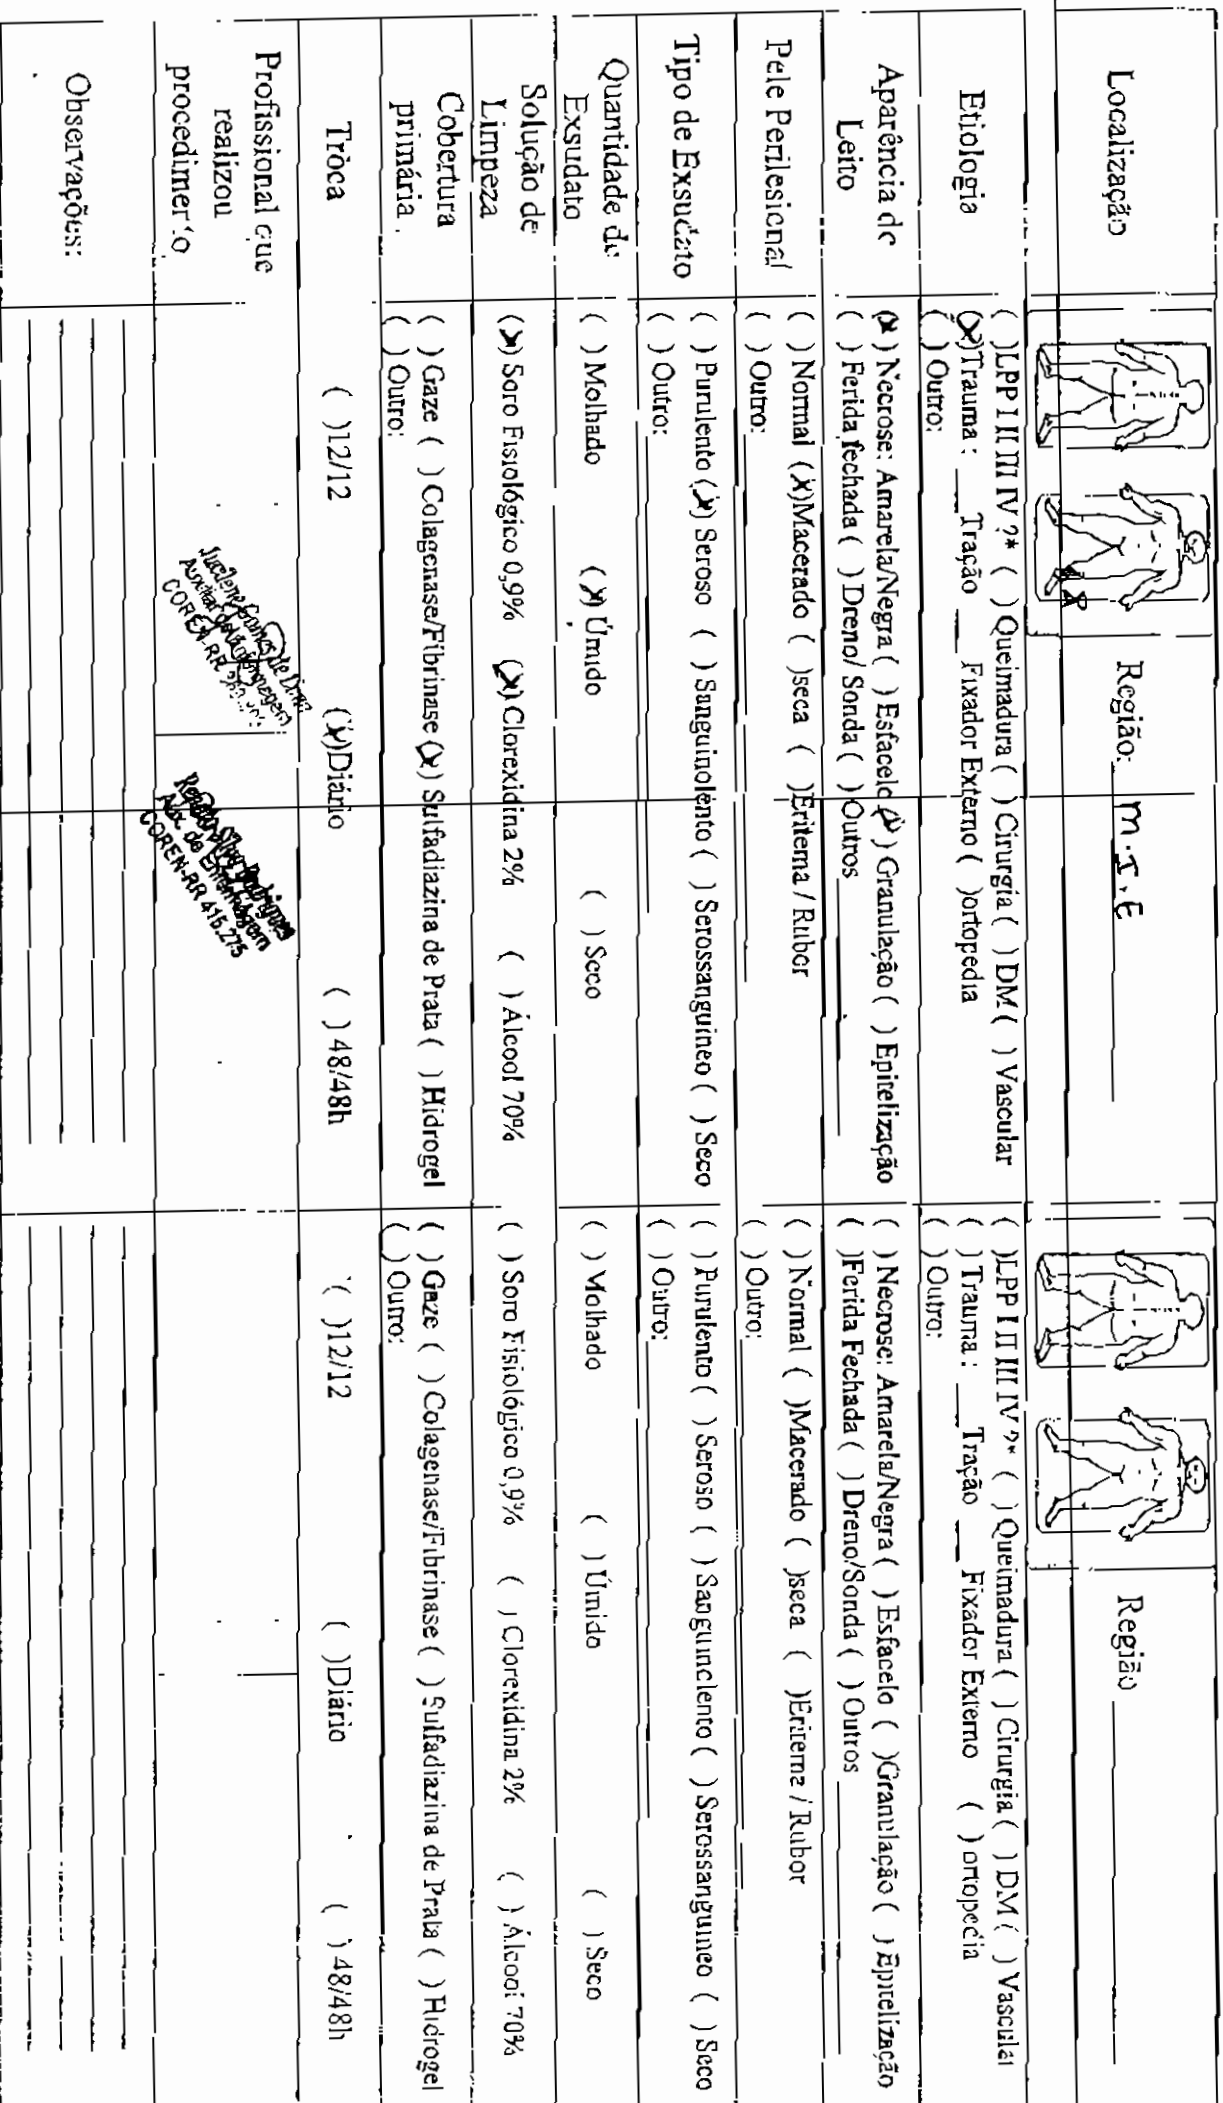 Localização
Região: M.I.E
Região
Etiologia
( )LPP I II III IV ?* ( ) Queimadura ( ) Cirurgia ( ) DM ( ) Vascular
(X)Trauma : ___ Tração ___ Fixador Externo ( )ortopedia
( ) Outro:
( )LPP I II III IV ?* ( ) Queimadura ( ) Cirurgia ( ) DM ( ) Vascular
( ) Trauma : ___ Tração ___ Fixador Externo ( ) ortopedia
( ) Outro:
Aparência do
Leito
(X) Necrose: Amarela/Negra ( ) Esfacelo (X) Granulação ( ) Epitelização
( ) Ferida fechada ( ) Dreno/ Sonda ( ) Outros
( ) Necrose: Amarela/Negra ( ) Esfacelo ( )Granulação ( ) Epitelização
( )Ferida Fechada ( ) Dreno/Sonda ( ) Outros
Pele Perilesional
( ) Normal (X)Macerado ( )seca ( )Eritema / Rubor
( ) Outro:
( ) Normal ( )Macerado ( )seca ( )Eritema / Rubor
( ) Outro:
Tipo de Exsudato
( ) Purulento (X) Seroso ( ) Sanguinolento ( ) Serossanguíneo ( ) Seco
( ) Outro:
( ) Purulento ( ) Seroso ( ) Sanguinolento ( ) Serossanguíneo ( ) Seco
( ) Outro:
Quantidade de
Exsudato
( ) Molhado (X) Úmido ( ) Seco
( ) Molhado ( ) Úmido ( ) Seco
Solução de
Limpeza
(X) Soro Fisiológico 0,9% (X) Clorexidina 2% ( ) Álcool 70%
( ) Soro Fisiológico 0,9% ( ) Clorexidina 2% ( ) Álcool 70%
Cobertura
primária
( ) Gaze ( ) Colagenase/Fibrinase (X) Sulfadiazina de Prata ( ) Hidrogel
( ) Outro:
( ) Gaze ( ) Colagenase/Fibrinase ( ) Sulfadiazina de Prata ( ) Hidrogel
( ) Outro:
Troca
( )12/12 (X)Diário ( ) 48/48h
( )12/12 ( )Diário ( ) 48/48h
Profissional que
realizou
procedimento
Auxiliar de Enfermagem
COREN-RR
Aux. de Enfermagem
COREN-RR 415.275
Observações: